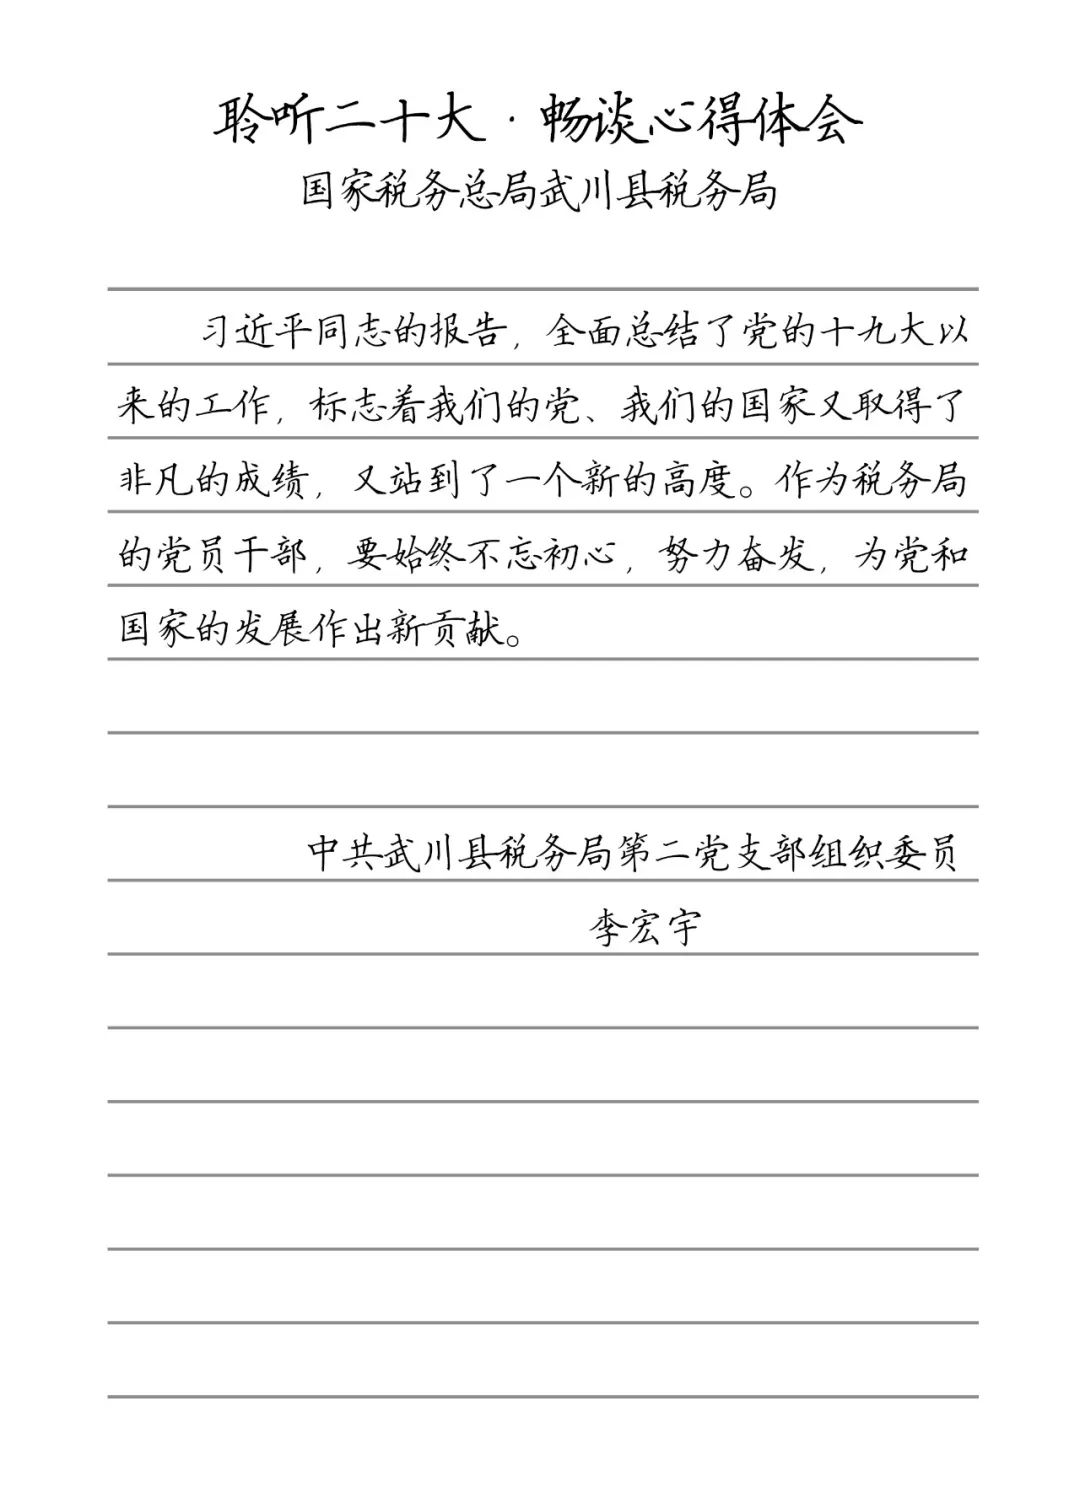 聆听二十大·畅谈心得体会
国家税务总局武川县税务局
习近平同志的报告，全面总结了党的十九大以
来的工作，标志着我们的党、我们的国家又取得了
非凡的成绩，又站到了一个新的高度。作为税务局
的党员干部，要始终不忘初心，努力奋发，为党和
国家的发展作出新贡献。
中共武川县税务局第二党支部组织委员
李宏宇